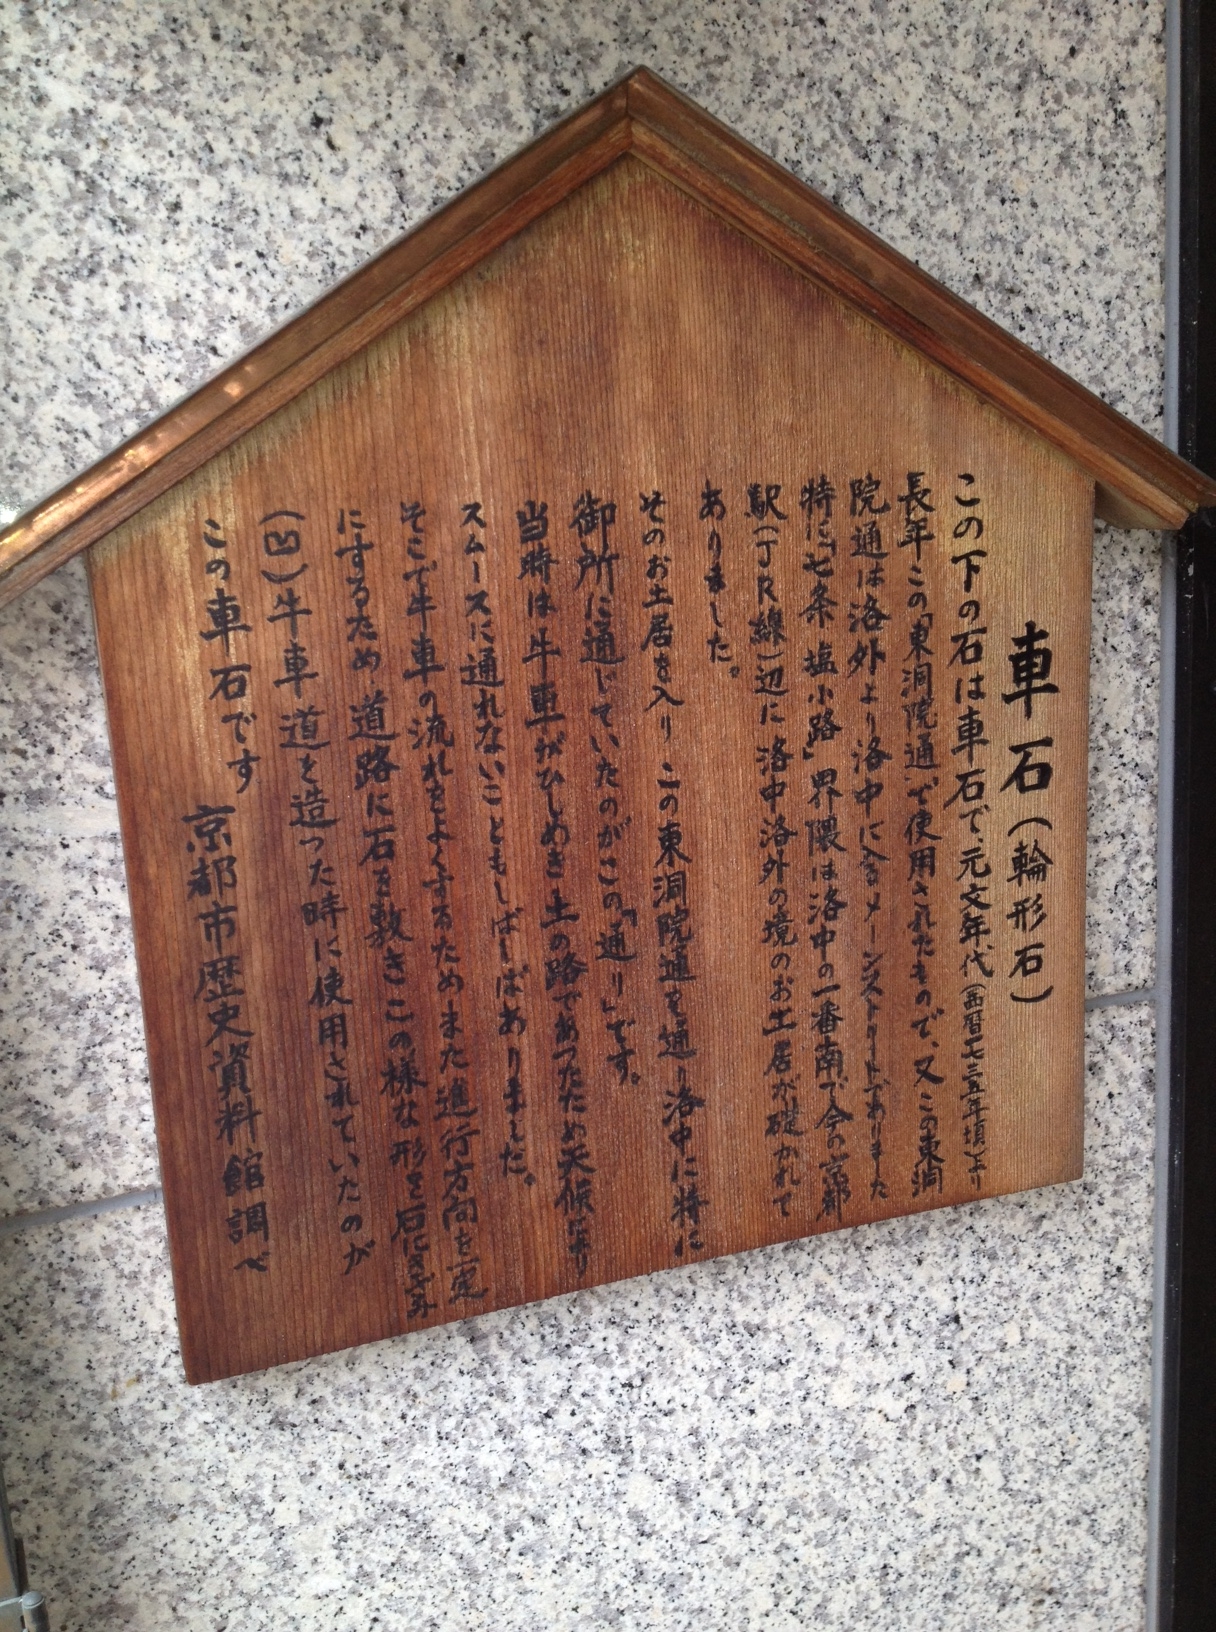 車石（輪形石）
この下の石は車石で、元文年代（西暦一七三五年頃）より
長年この「東洞院通」で使用されたもので、又この東洞
院通は洛外より洛中に入るメーンストリートでありました
特に「七条塩小路」界隈は洛中の一番南で今の京都
駅（JR線）辺に洛中洛外の境のお土居が礎かれて
ありました。
そのお土居を入りこの東洞院通を通り洛中に特に
御所に通じていたのがこの「通り」です。
当時は牛車がひしめき土の路であつたため天候により
スムースに通れないこともしばしばありました。
そこで牛車の流れをよくするためまた進行方向を一定
にするため道路に石を敷きこの様な形を石にきざみ
（凹）牛車道を造った時に使用されていたのが
この車石です
京都市歴史資料館調べ